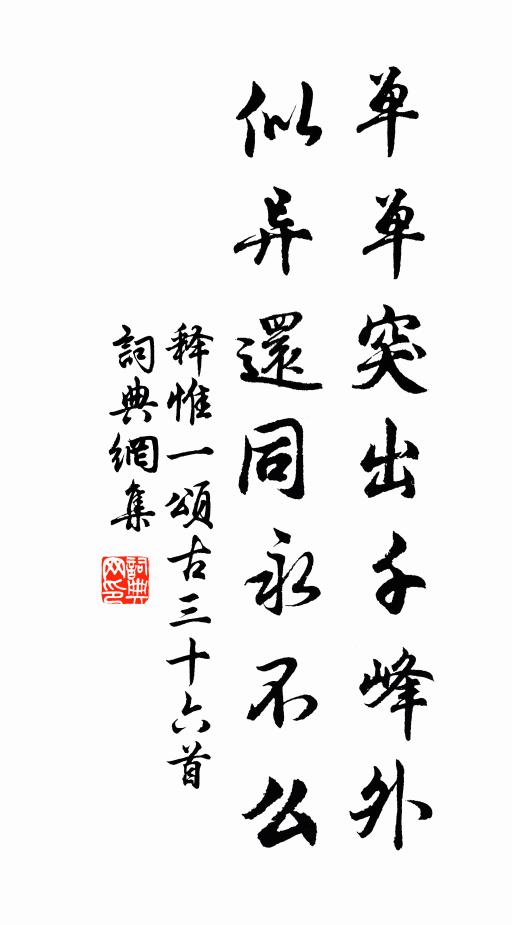 单单突出千峰外
似异還同永不么
释惟一頌古三十六首
詞典網集
詞典
网印